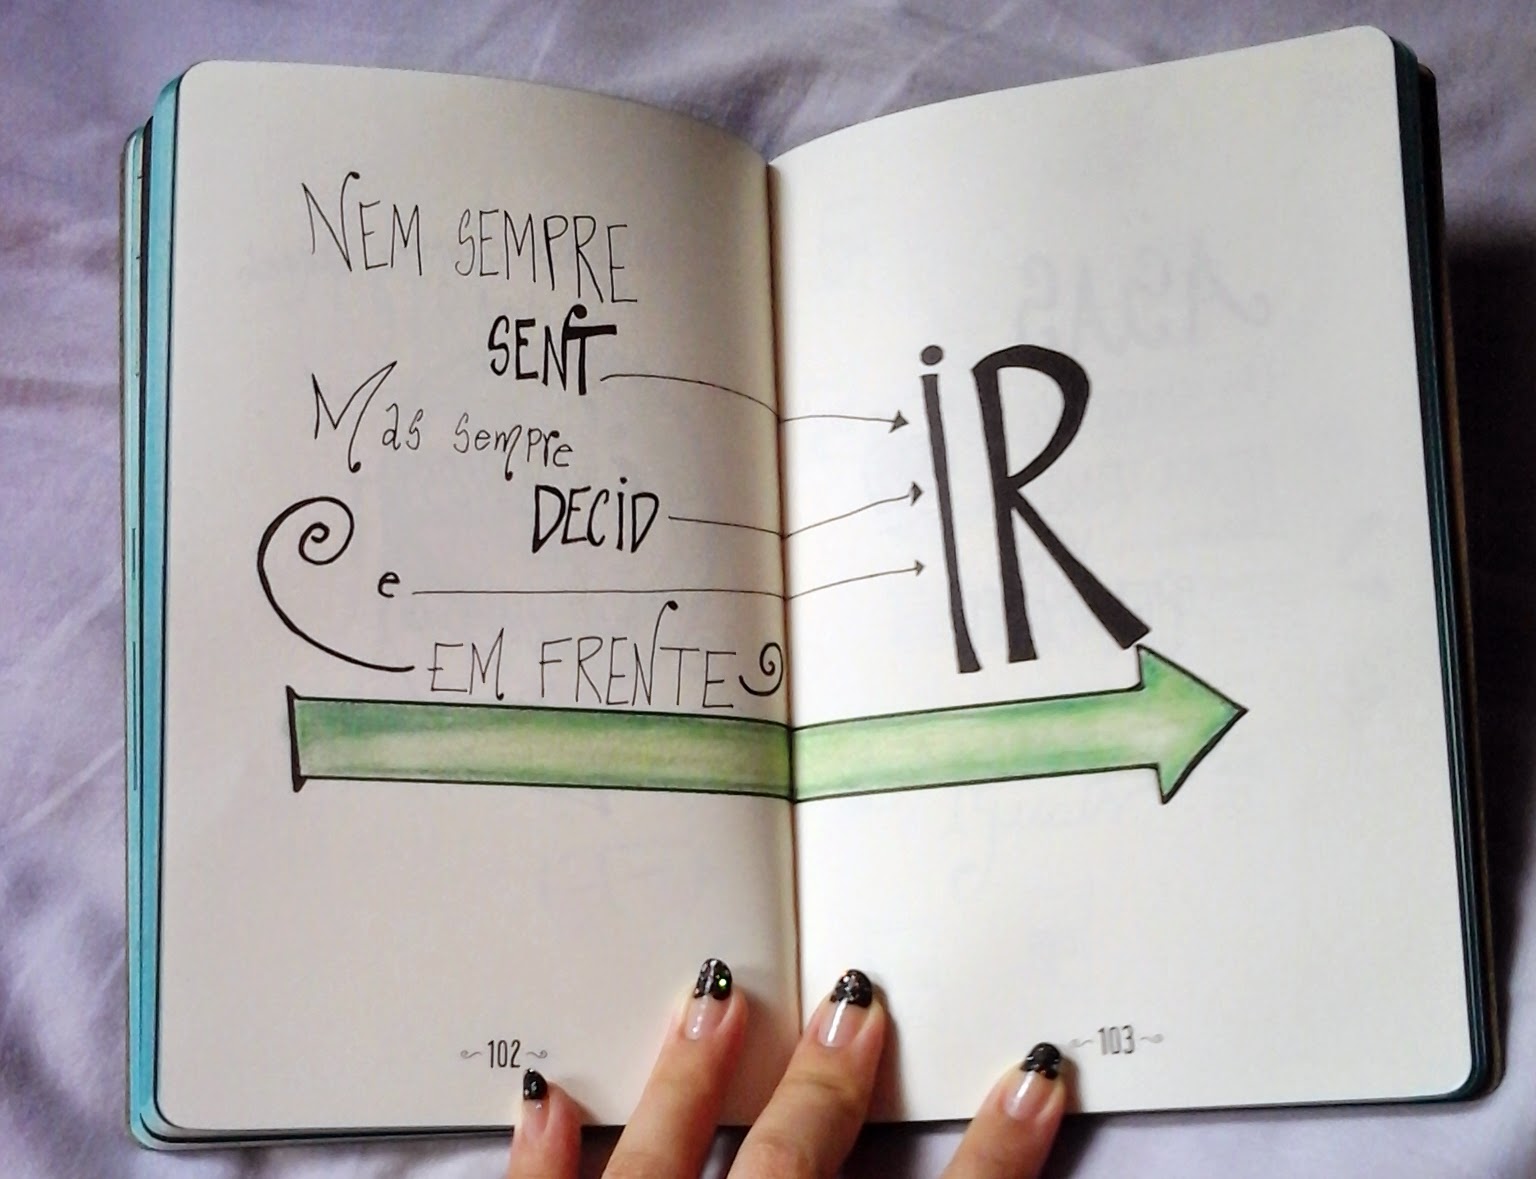 NEM SEMPRE
SENT
Mas sempre
DECID
e
EM FRENTE
iR
102
103
ASAS